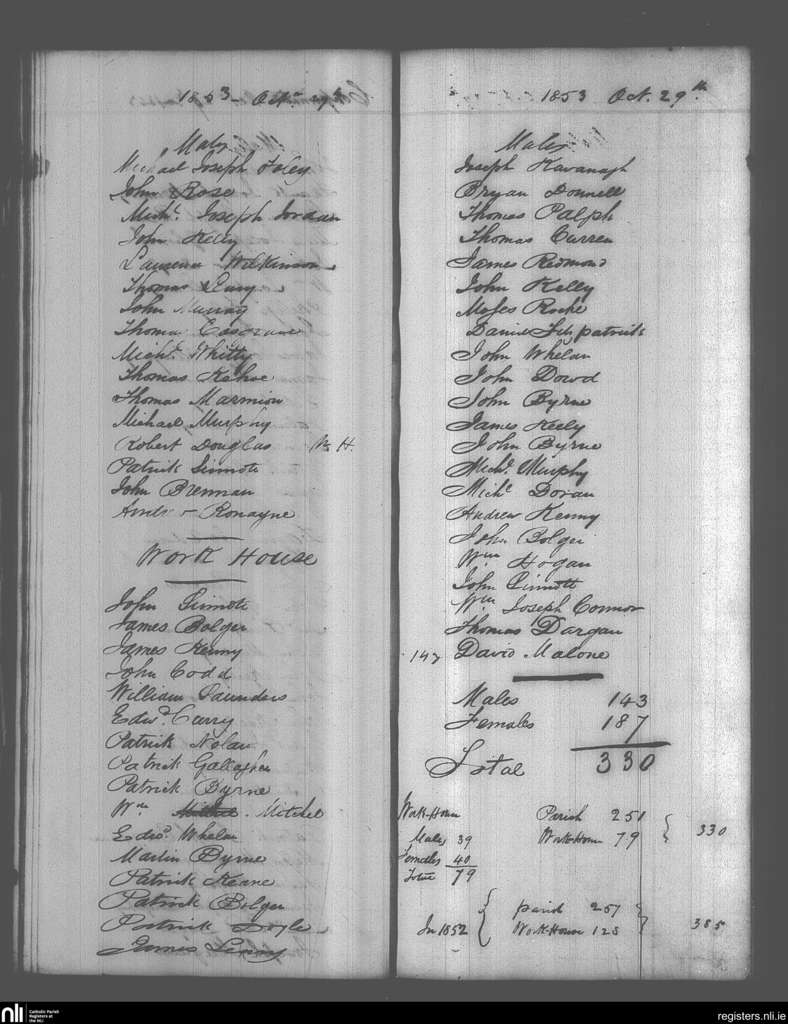 1853 Oct. 29th
Males
Michael Joseph Foley
John Rose
Michl. Joseph Jordan
John Kelly
Wilkinson
Thomas
John Murray
Thomas Cosgrave
Michl. Whitty
Thomas Kehoe
Thomas Marmion
Michael Murphy
Robert Douglas W. H.
Patrick Sinnott
John Brennan
Ronayne
Work House
John Sinnott
James Bolger
James Kenny
John Codd
William Saunders
Edwd. Carry
Patrick Nolan
Patrick Gallagher
Patrick Byrne
Wm Mitchel
Edwd. Whelan
Martin Byrne
Patrick Keane
Patrick Bolger
Patrick Doyle
James
1853 Oct. 29th
Males
Joseph Kavanagh
Bryan Donnell
Thomas Ralph
Thomas Curren
James Redmond
John Kelly
Moses Roche
Daniel Fitzpatrick
John Whelan
John Dowd
John Byrne
James Keely
John Byrne
Michl. Murphy
Michl Doran
Andrew Kenny
John Bolger
Wm Hogan
John Sinnott
Wm Joseph Connor
Thomas Dargan
143 David Malone
Males 143
Females 187
Total 330
Work-House
Males 39
Females 40
Total 79
Parish 251
Work-House 79
330
In 1852
parish 257
Work-House 128
385
nli
Catholic Parish
Registers at
the NLI
registers.nli.ie